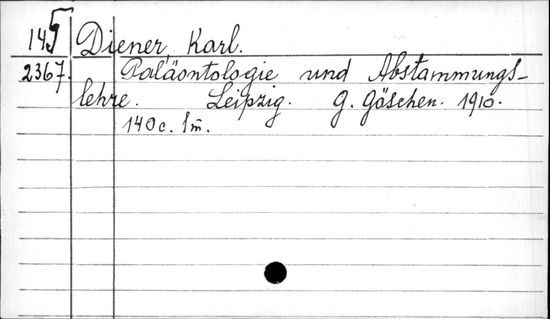 145 Diener, Karl.
2367. Paläontologie und Abstammungs-
lehre. Leipzig. G. Göschen. 1910.
140 c. 1m̄.